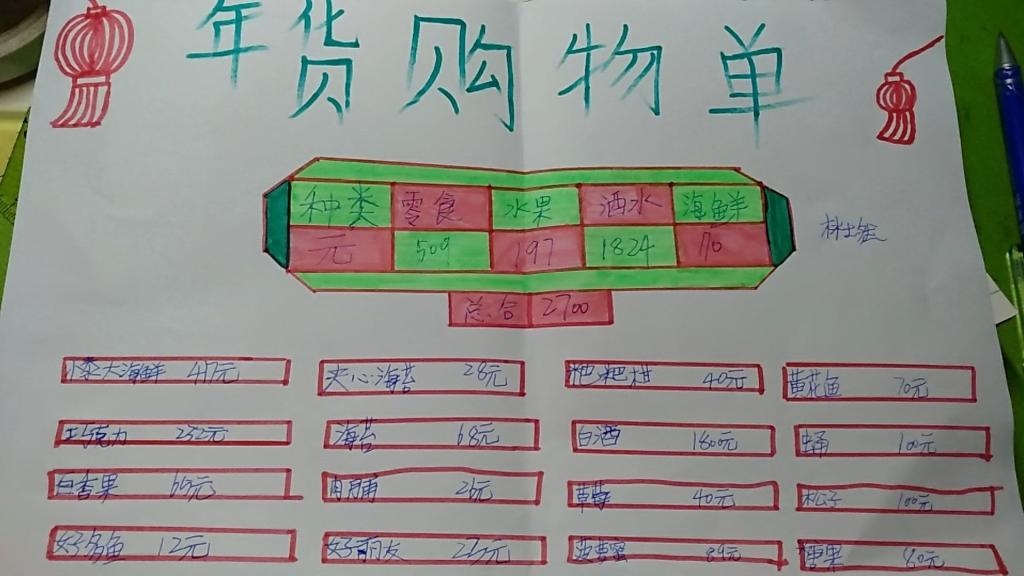 年货购物单
种类 零食 水果 酒水 海鲜
元 509 197 1824 70
总合 2700
大海鲜 417元 夹心海苔 28元 粑粑柑 40元 黄花鱼 70元
巧克力 232元 海苔 68元 白酒 1800元 蛹 100元
百香果 元 肉脯 26元 草莓 40元 松子 100元
好多鱼 12元 好丽友 元 菠萝蜜 89元 糖果 80元